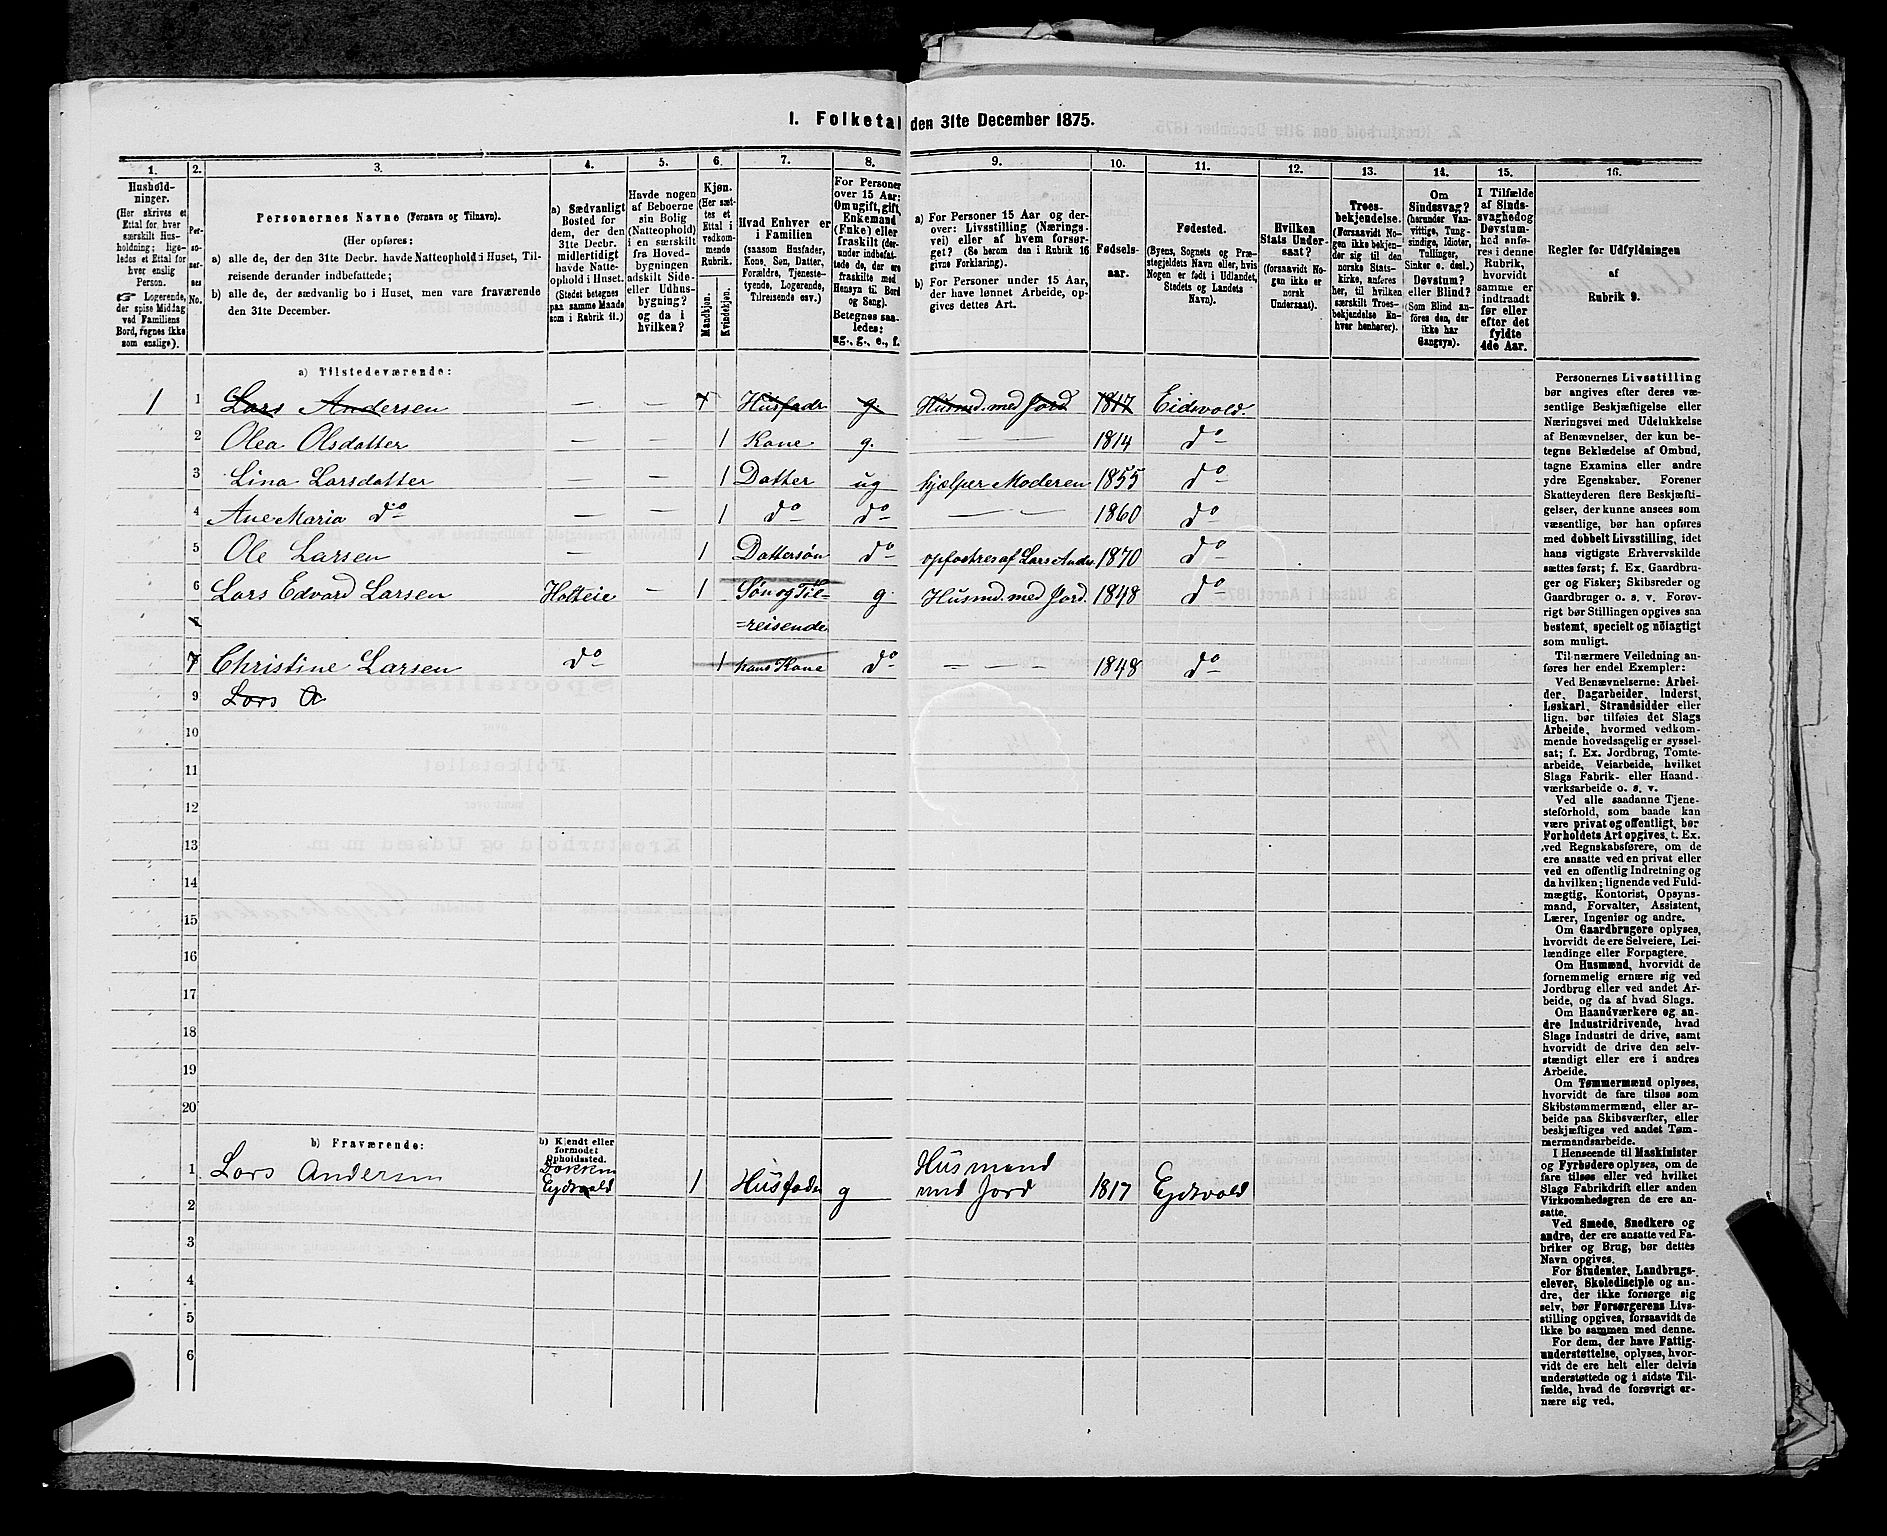 1. Folketal den 31te December 1875.
1. 2. 3. 4. 5. 6. 7. 8. 9. 10. 11. 12. 13. 14. 15. 16.
Hushold-
ninger.
(Her skrives et
Ettal for hver
særskilt Hus-
holdning; lige-
ledes et Ettal for
hver enslig
Person.
☞ Logerende,
der spise Middag
ved Familiens
Bord, regnes ikke
som enslige).
Per-
so-
ner-
nes
No.
Personernes Navne (Fornavn og Tilnavn).
(Her opføres:
a) alle de, der den 31te Decbr. havde Natteophold i Huset, Til-
reisende derunder indbefattede;
b) alle de, der sædvanlig bo i Huset, men vare fraværende
den 31te December.
a) Sædvanligt
Bosted for
dem, der den
31te Decbr.
midlertidigt
havde Natte-
ophold i Huset.
(Stedet betegnes
paa samme Maade
som i Rubrik 11.)
Havde nogen
af Beboerne
sin Bolig
(Natteophold)
i en særskilt
fra Hoved-
bygningen
adskilt Side-
eller Udhus-
bygning?
og da i
hvilken?
Kjøn.
(Her sæt-
tes et
Ettal i
vedkom-
mende
Rubrik.
Mandkjøn.
Kvindekjøn.
Hvad Enhver er
i Familien
(saasom Husfader,
Kone, Søn, Datter,
Forældre, Tjeneste-
tyende, Logerende,
Tilreisende osv.)
For Personer
over 15 Aar:
Om ugift, gift,
Enkemand
(Enke) eller
fraskilt (der-
under indbefat-
tede de, der ere
fraskilte med
Hensyn til Bord
og Seng).
Betegnes saa-
ledes:
ug., g., e., f.
a) For Personer 15 Aar og der-
over: Livsstilling (Nærings-
vei) eller af hvem forsør-
get? (Se herom den i Rubrik 16
givne Forklaring).
b) For Personer under 15 Aar,
der have lønnet Arbeide, op-
gives dettes Art.
Fødsels-
aar.
Fødested.
(Byens, Sognets og Præ-
stegjeldets Navn eller, hvis
Nogen er født i Udlandet,
Stedets og Landets
Navn).
Hvilken
Stats Under-
saat?
(forsaavidt No-
gen ikke er
norsk
Undersaat).
Troes-
bekjendelse.
(Forsaavidt No-
gen ikke bekjen-
der sig til den
norske Stats-
kirke, anføres
her, til hvilken
særskilt Troes-
bekjendelse En-
hver henhører).
Om
Sindssvag?
(herunder Van-
vittige, Tung-
sindige, Idioter,
Tullinger,
Sinker o. desl.)
Døvstum?
eller Blind?
(Som Blind an-
føres den, der
ikke har
Gangsyn).
I Tilfælde
af Sinds-
svaghed og
Døvstum-
hed anfø-
res i denne
Rubrik,
hvorvidt
samme er
indtraadt
før eller
efter det
fyldte
4de Aar.
Regler for Udfyldningen
af
Rubrik 9.
a) Tilstedeværende:
1 1 Lars Andersen — — 1 Husfader g Husmd. med Jord 1817 Eidsvold.
2 Olea Olsdatter — — 1 Kone g. — — 1814 do
3 Lina Larsdatter — — 1 Datter ug hjælper Moderen 1855 do
4 Ane Maria do — — 1 do do — — 1860 do
5 Ole Larsen — 1 Dattersøn do opfostres af Lars Anders. 1870 do
6 Lars Edvard Larsen Holteie — 1 Søn og Til- g. Husmd. med Jord. 1848 do
=reisende
7 Christine Larsen do 1 hans Kone do — — — 1848 do
9 Lars A
10
11
12
13
14
15
16
17
18
19
20
b) Fraværende:
b) Kjendt eller
formodet
Opholdssted.
1 Lars Andersen Eydsvold 1 Husfader g Husmand
med Jord 1817 Eydsvold
2
3
4
5
6
Personernes Livsstilling
bør angives efter deres væ-
sentlige Beskjæftigelse eller
Næringsvei med Udelukkelse
af Benævnelser, der kun be-
tegne Beklædelse af Ombud,
tagne Examina eller andre
ydre Egenskaber. Forener
Skatteyderen flere Beskjæfti-
gelser, der kunne ansees som
væsentlige, bør han opføres
med dobbelt Livsstilling, idet
hans vigtigste Erhvervskilde
sættes først; f. Ex. Gaardbru-
ger og Fisker; Skibsreder og
Gaardbruger o. s. v. Forøv-
rigt bør Stillingen opgives saa
bestemt, specielt og nøiagtigt
som muligt.
Til nærmere Veiledning an-
føres her endel Exempler:
Ved Benævnelserne: Arbei-
der, Dagarbeider, Inderst,
Løskarl, Strandsidder eller
lign. bør tilføies det Slags
Arbeide, hvormed vedkom-
mende hovedsagelig er syssel-
sat; f. Ex. Jordbrug, Tomte-
arbeide, Veiarbeide, hvilket
Slags Fabrik- eller Haand-
værksarbeide o. s. v.
Ved alle saadanne Tjene-
steforhold, som baade kan
være privat og offentligt, bør
Forholdets Art opgives, t. Ex.
ved Regnskabsførere, om de
ere ansatte ved en privat eller
ved en offentlig Indretning og
da hvilken; lignende ved Fuld-
mægtig, Kontorist, Opsyns-
mand, Forvalter, Assistent,
Lærer, Ingeniør og andre.
Om Gaardbrugere oplyses,
hvorvidt de ere Selveiere, Lei-
lændinge eller Forpagtere.
Om Husmænd, hvorvidt de
fornemmelig ernære sig ved
Jordbrug eller ved andet Ar-
beide, og da af hvad Slags.
Om Haandværkere og an-
dre Industridrivende, hvad
Slags Industri de drive, samt
hvorvidt de drive den selv-
stændigt eller ere i andres
Arbeide.
Om Tømmermænd oplyses,
hvorvidt de fare tilsøs som
Skibstømmermænd, eller ar-
beide paa Skibsværfter, eller
beskjæftiges ved andet Tøm-
mermandsarbeide.
I Henseende til Maskinister
og Fyrbødere oplyses, om de
fare tilsøs eller ved hvilket
Slags Fabrikdrift eller anden
Virksomhedsgren de ere an-
satte.
Ved Smede, Snedkere og
andre, der ere ansatte ved Fa-
briker og Brug, bør dettes
Navn opgives.
For Studenter, Landbrugs-
elever, Skoledisciple og an-
dre, der ikke forsørge sig
selv, bør Forsørgerens Livs-
stilling opgives, forsaavidt de
ikke bo sammen med denne.
For dem, der have Fattig-
understøttelse, oplyses, hvor-
vidt de ere helt eller delvis
understøttede og i sidste Til-
fælde, hvad de forøvrigt er-
nære sig ved.